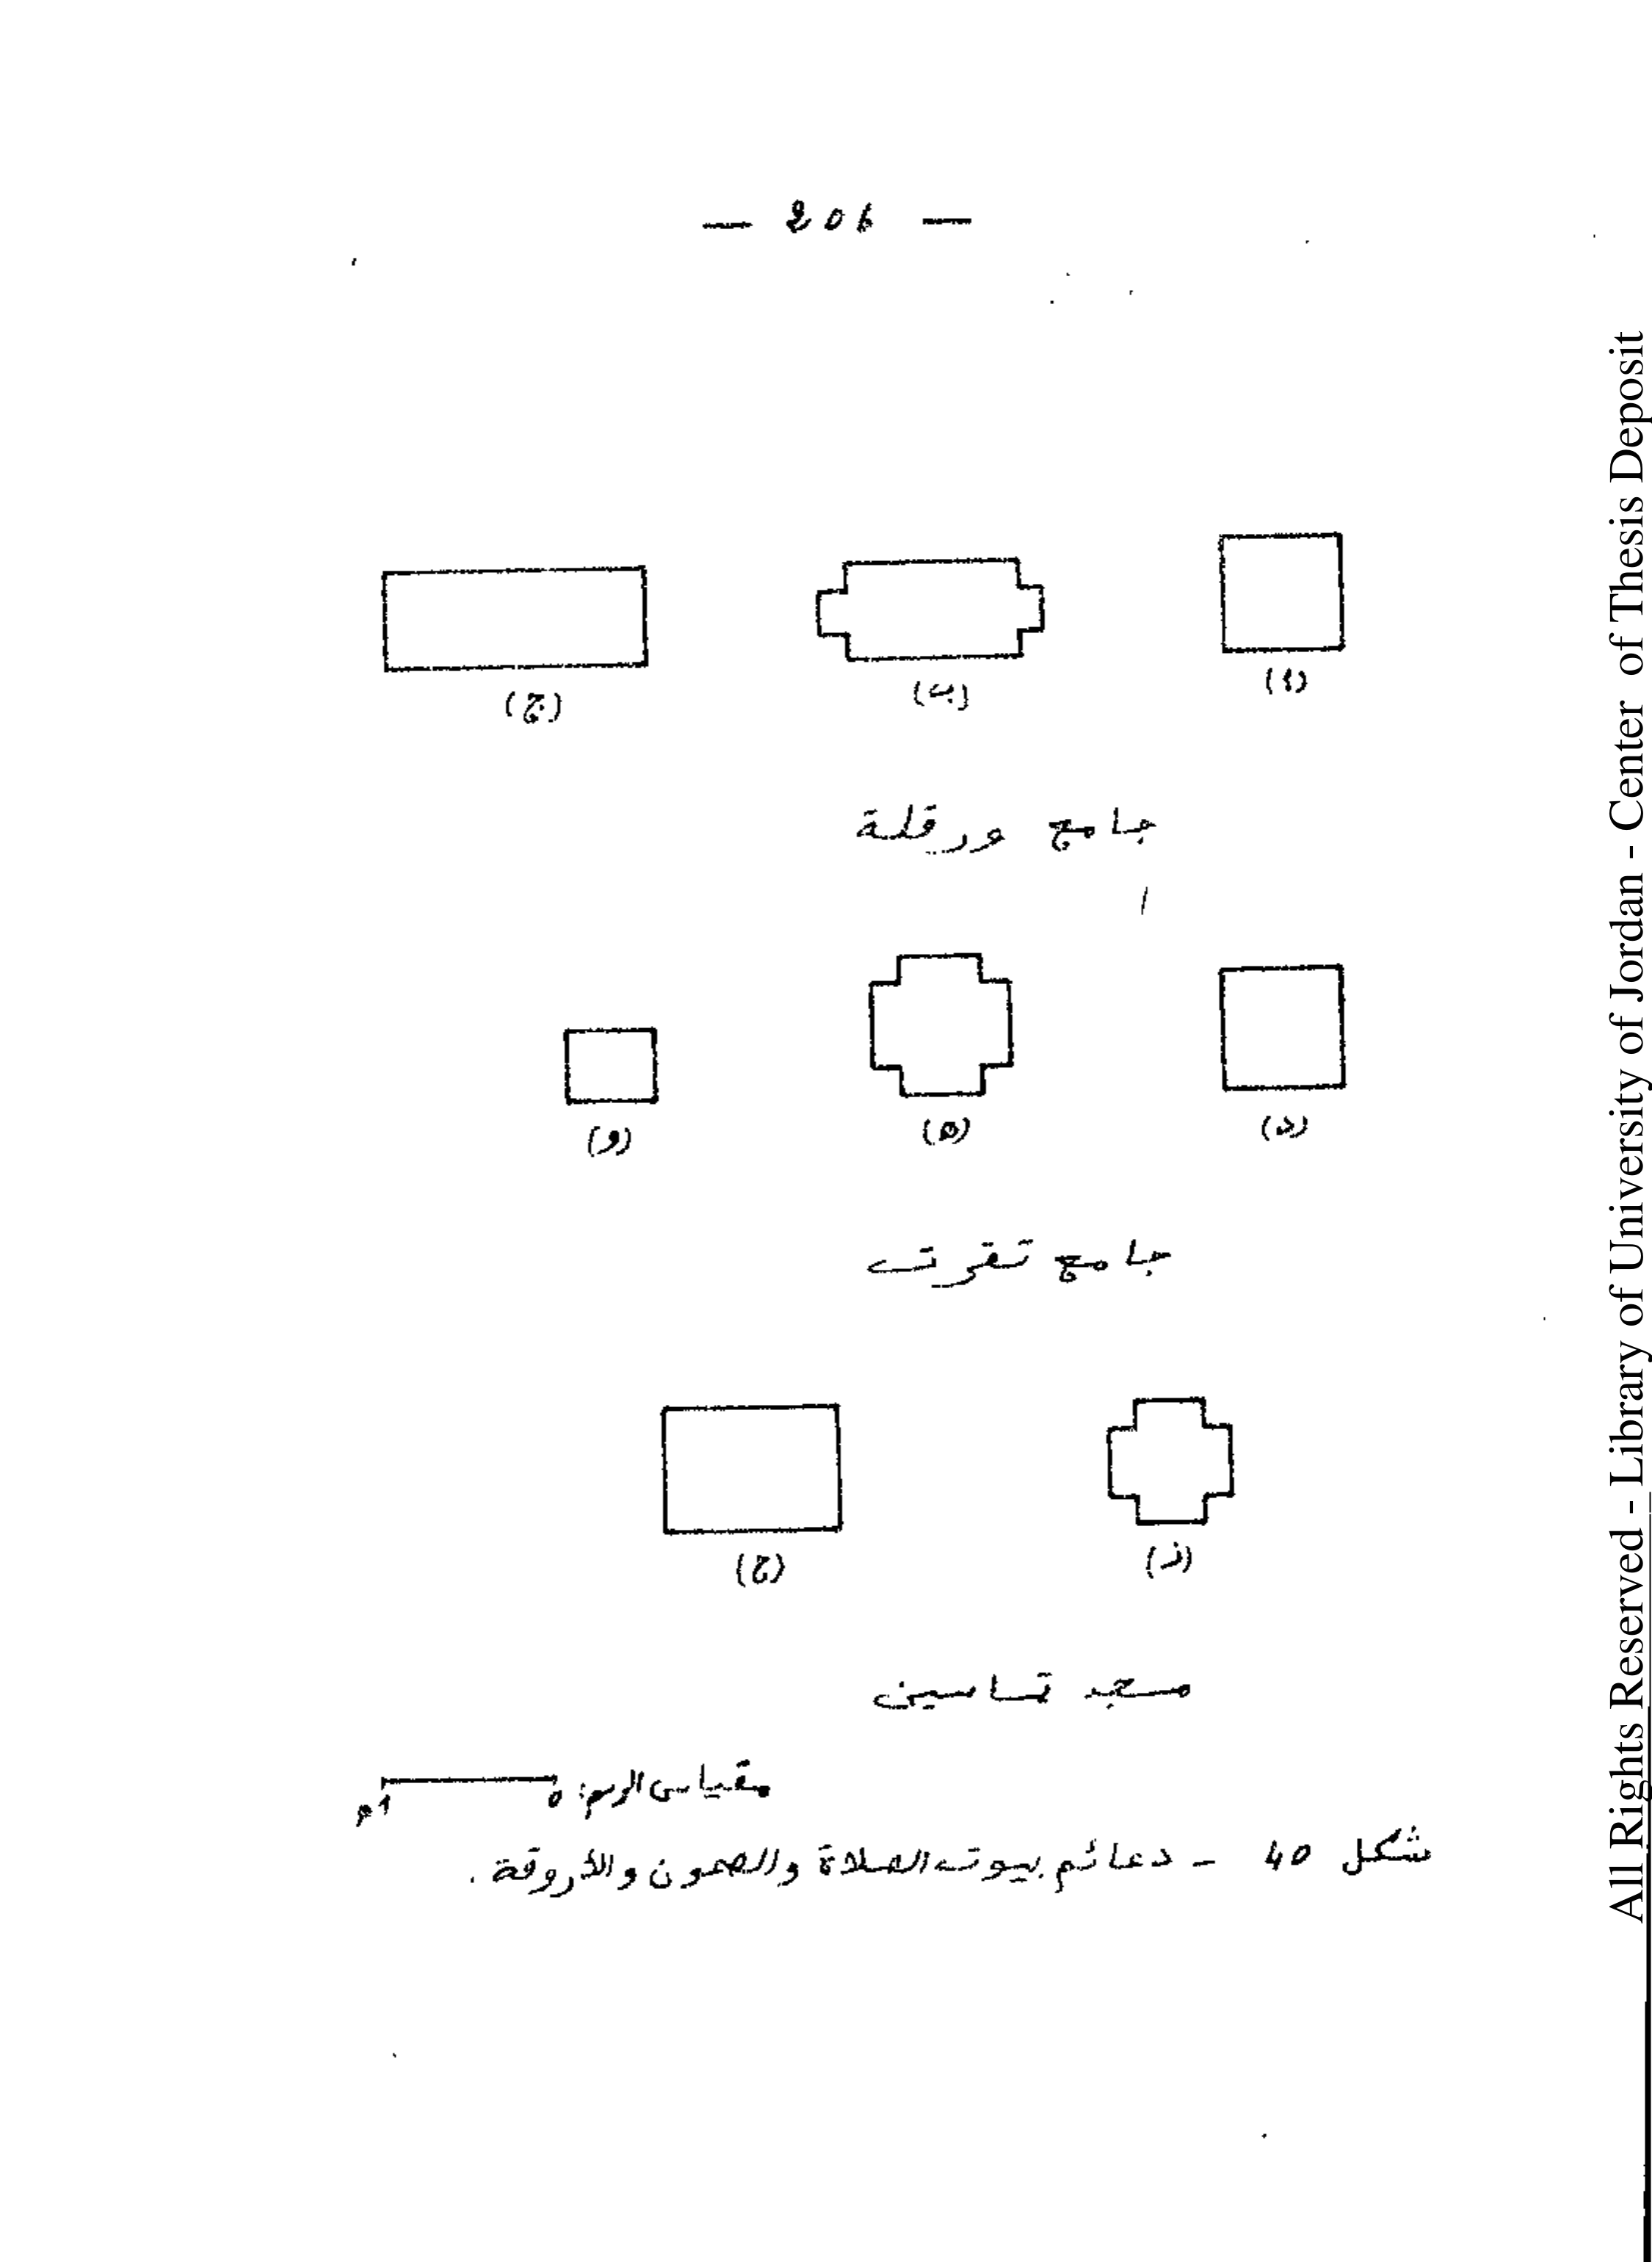 — 206 —
(أ) (ب) (ج)
جامع ورقلة
(د) (ه) (و)
جامع تقرت
(ز) (ح)
مسجد تماسين
مقياس الرسم: 0 1م
شكل 40 - دعائم بيوت الصلاة والصحون والأروقة.
All Rights Reserved - Library of University of Jordan - Center of Thesis Deposit